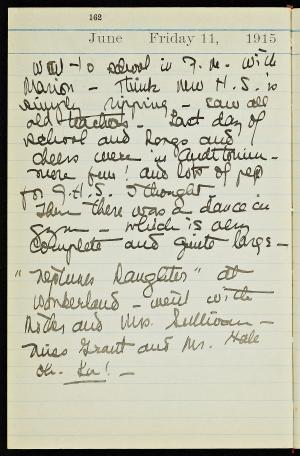 162
June Friday 11, 1915
Went to school in P.M. with
Marion - Think new H.S. is
simply ripping - saw all
old teachers. Last day of
school and songs and
cheers were in Auditorium -
more fun! and lots of pep
for J.H.S. I thought
Then there was a dance in
gym - which is very
complete and quite large -
"Neptunes Daughter" at
Wonderland - went with
Mother and Mrs. Sullivan -
Miss Grant and Mr. Hale